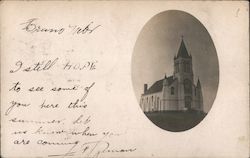 Truro Nebr
I still hope
to see some of
you here this
summer. let
us know when you
are coming